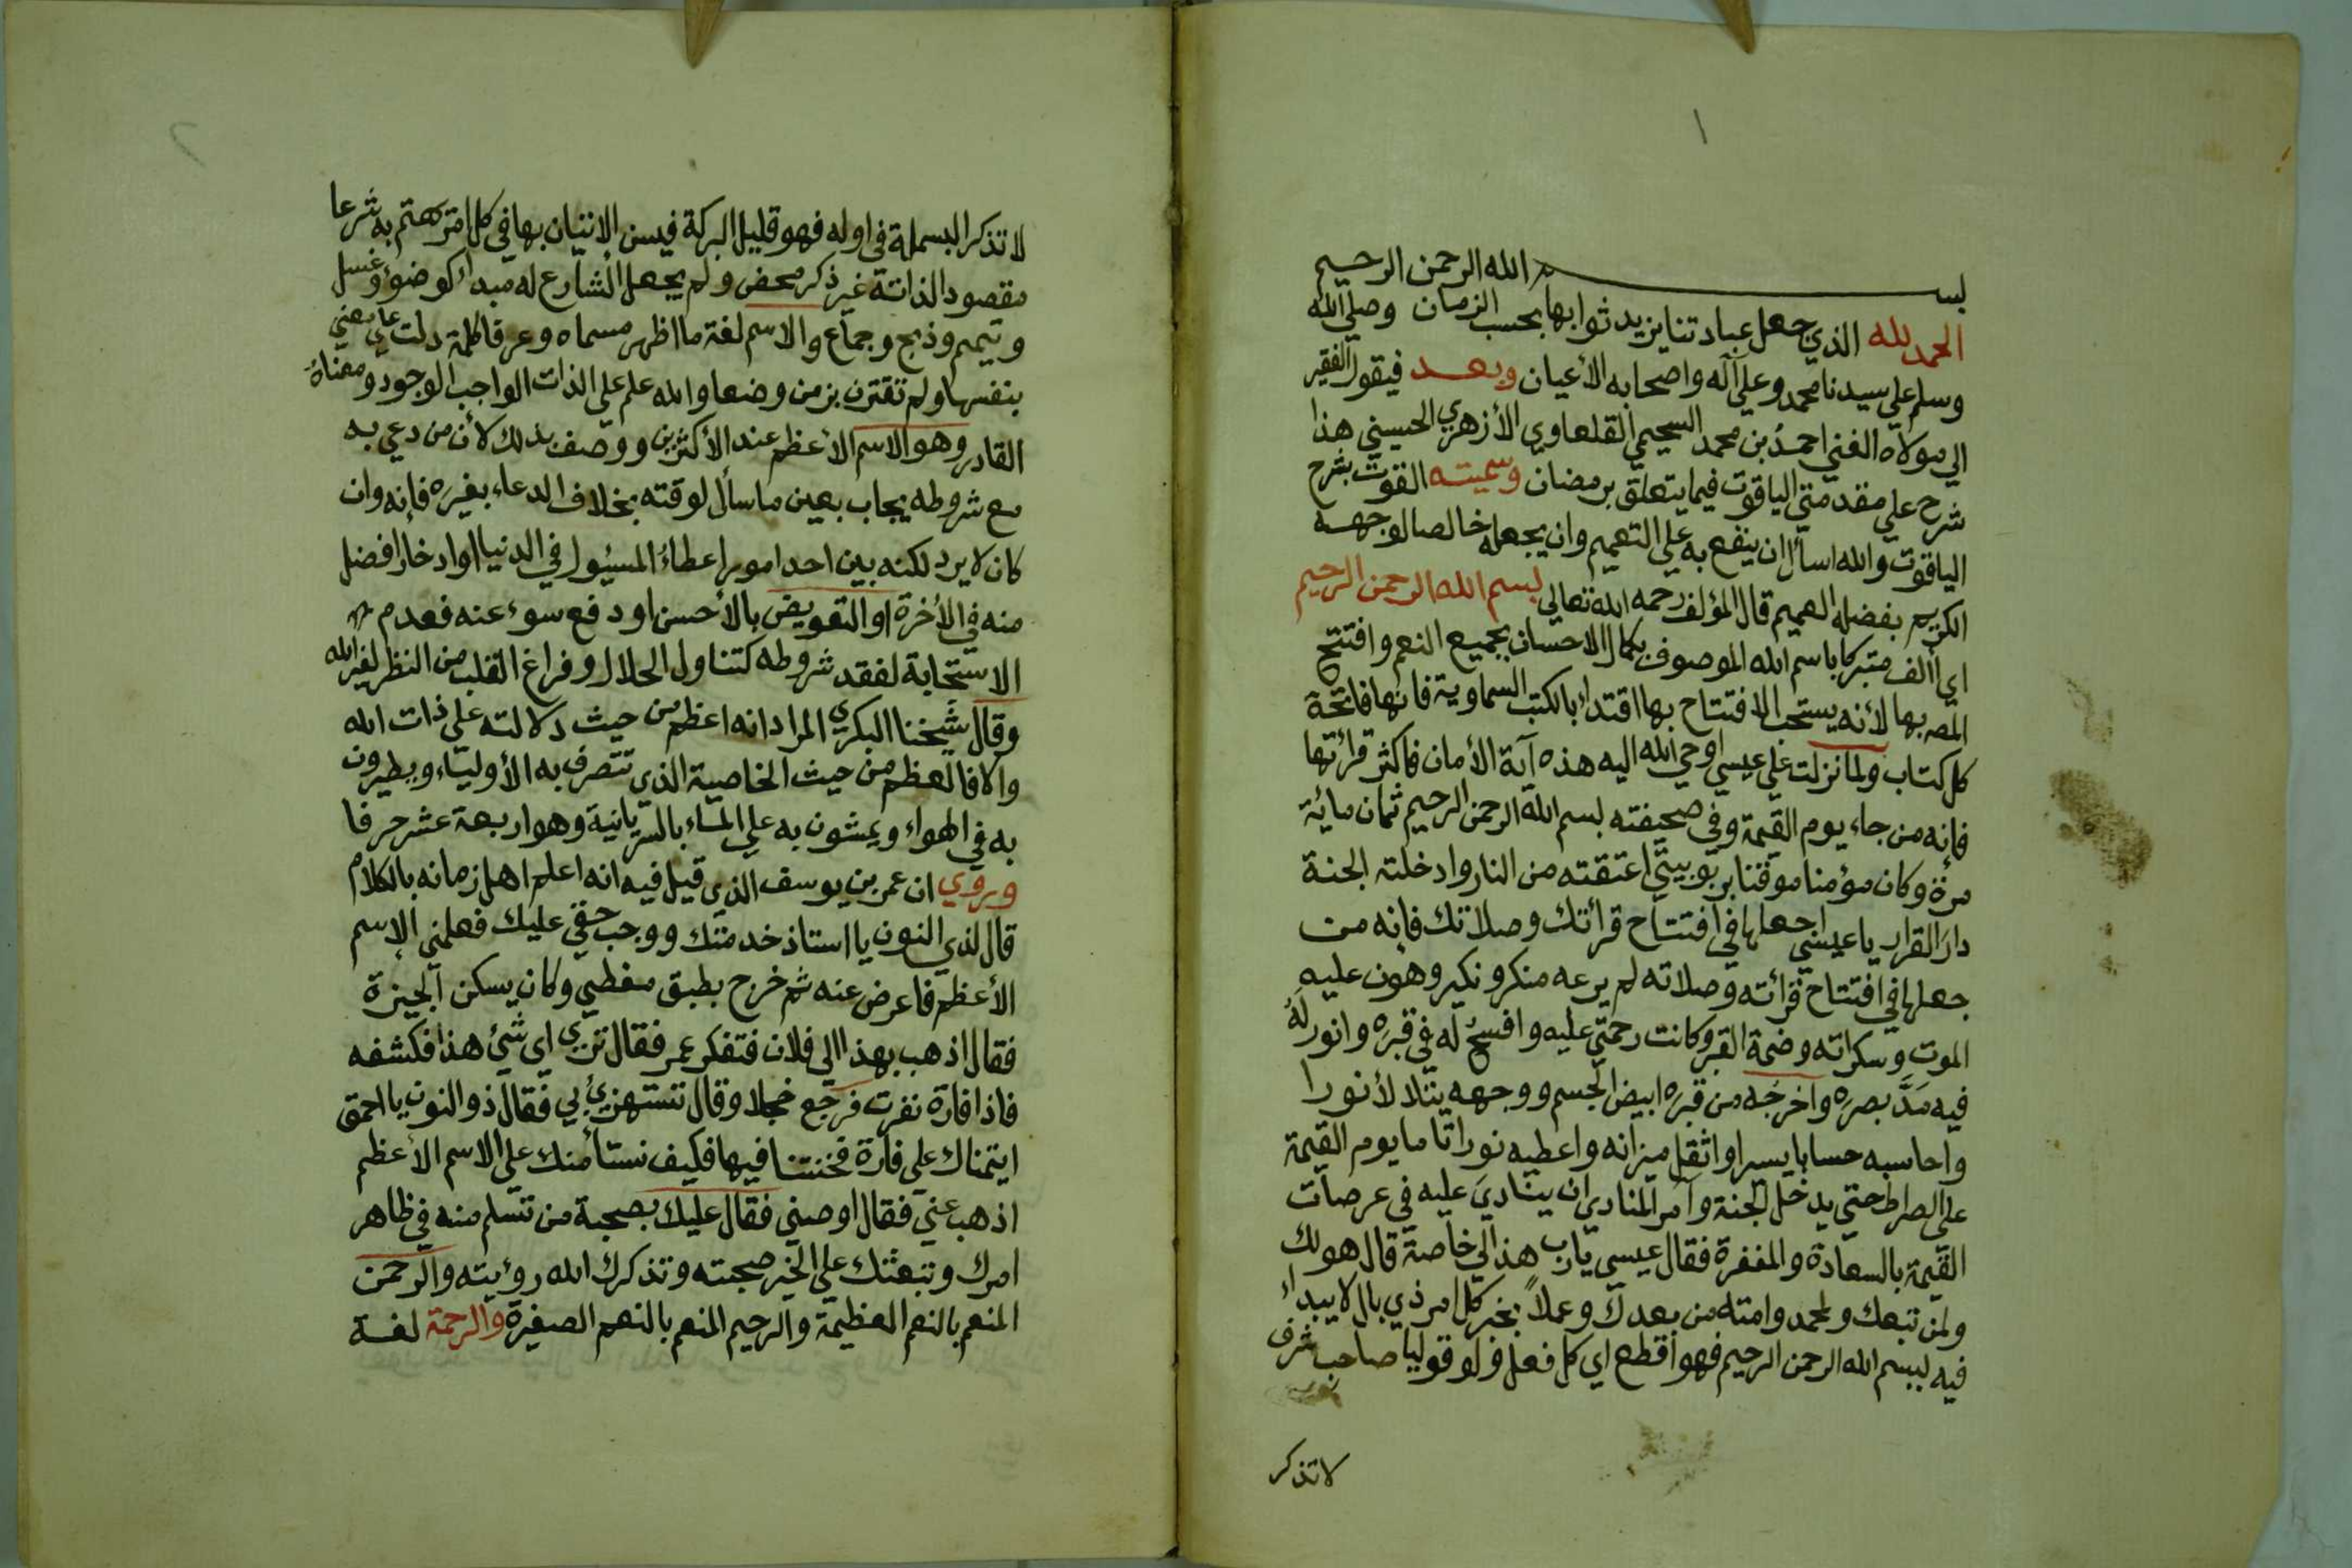 ١
بسم الله الرحمن الرحيم
الحمد لله الذي جعل عبادتنا يزيد ثوابها بحسب الزمان وصلي الله
وسلم علي سيدنا محمد وعلي آله واصحابه الأعيان وبعد فيقول الفقير
الي مولاه الغني احمد بن محمد السحيمي القلعاوي الأزهري الحسيني هذا
شرح علي مقدمتي الياقوت فيما يتعلق برمضان وسميته القوت بشرح
الياقوت والله اسأل ان ينفع به علي التعميم وان يجعله خالصا لوجهه
الكريم بفضله العميم قال المؤلف رحمه الله تعالي بسم الله الرحمن الرحيم
اي أألف متبركا باسم الله الموصوف بكمال الاحسان بجميع النعم وافتتح
المص بها لأنه يستحب الافتتاح بها اقتداء بالكتب السماوية فانها فاتحة
كل كتاب ولما نزلت علي عيسي اوحي الله اليه هذه آية الأمان فاكثر قرائتها
فإنه من جاء يوم القيمة وفي صحيفته بسم الله الرحمن الرحيم ثمان مائة
مرة وكان مؤمنا موقنا بربوبيتي اعتقته من النار وادخلته الجنة
دار القرار يا عيسي اجعلها في افتتاح قرائتك وصلاتك فإنه من
جعلها في افتتاح قرائته وصلاته لم يرعه منكر ونكير وهون عليه
الموت وسكراته وضمة القبر وكانت رحمتي عليه وافسح له في قبره وانور له
فيه مد بصره واخرجه من قبره ابيض الجسم ووجهه يتلالأ نورا
واحاسبه حسابا يسيرا واثقل ميزانه واعطيه نورا تاما يوم القيمة
علي الصراط حتي يدخل الجنة وآمر المنادي ان ينادي عليه في عرصات
القيمة بالسعادة والمغفرة فقال عيسي يا رب هذا لي خاصة قال هو لك
ولمن تبعك ولمحمد وامته من بعدك وعملا بخبر كل امر ذي بال لا يبداء
فيه ببسم الله الرحمن الرحيم فهو اقطع اي كل فعل ولو قوليا صاحب شرف
لا تذكر
٢
لا تذكر البسملة في اوله فهو قليل البركة فيسن الاتيان بها في كل امر مهتم به شرعا
مقصود الذاته غير ذكر محض ولم يجعل الشارع له مبدأ كوضوء وغسل
وتيمم وذبح وجماع والاسم لغة ما اظهر مسماه وعرفا كلمة دلت علي معني
بنفسها ولم تقترن بزمن وضعا والله علم علي الذات الواجب الوجود ومعناه
القادر وهو الاسم الأعظم عند الأكثرين ووصف بذلك لأن من دعي به
مع شروطه يجاب بعين ما سأل لوقته بخلاف الدعاء بغيره فإنه وان
كان لا يرد لكنه بين احد امور اعطاء المسئول في الدنيا او ادخار افضل
منه في الأخرة او التعويض بالأحسن او دفع سوء عنه فعدم
الاستجابة لفقد شروطه كتناول الحلال وفراغ القلب من النظر لغير الله
وقال شيخنا البكري المراد انه اعظم من حيث دلالته علي ذات الله
والا فالعظم من حيث الخاصية الذي تتصرف به الأولياء ويطيرون
به في الهواء ويمشون به علي الماء بالسريانية وهو اربعة عشر حرفا
وروي ان عمر بن يوسف الذي قيل فيه انه اعلم اهل زمانه بالكلام
قال لذي النون يا استاذ خدمتك ووجب حقي عليك فعلمني الاسم
الأعظم فاعرض عنه ثم خرج بطبق مغطي وكان يسكن الجيزة
فقال اذهب بهذا الي فلان فتفكر عمر فقال تري اي شئ هذا فكشفه
فاذا فارة نفرت فرجع خجلا وقال تستهزئ بي فقال ذو النون يا احمق
ايتمناك علي فارة فخنتنا فيها فكيف نستأمنك علي الاسم الأعظم
اذهب عني فقال اوصني فقال عليك بصحبة من تسلم منه في ظاهر
امرك وتبعثك علي الخير صحبته وتذكرك الله رؤيته والرحمن
المنعم بالنعم العظيمة والرحيم المنعم بالنعم الصغيرة والرحمة لغة